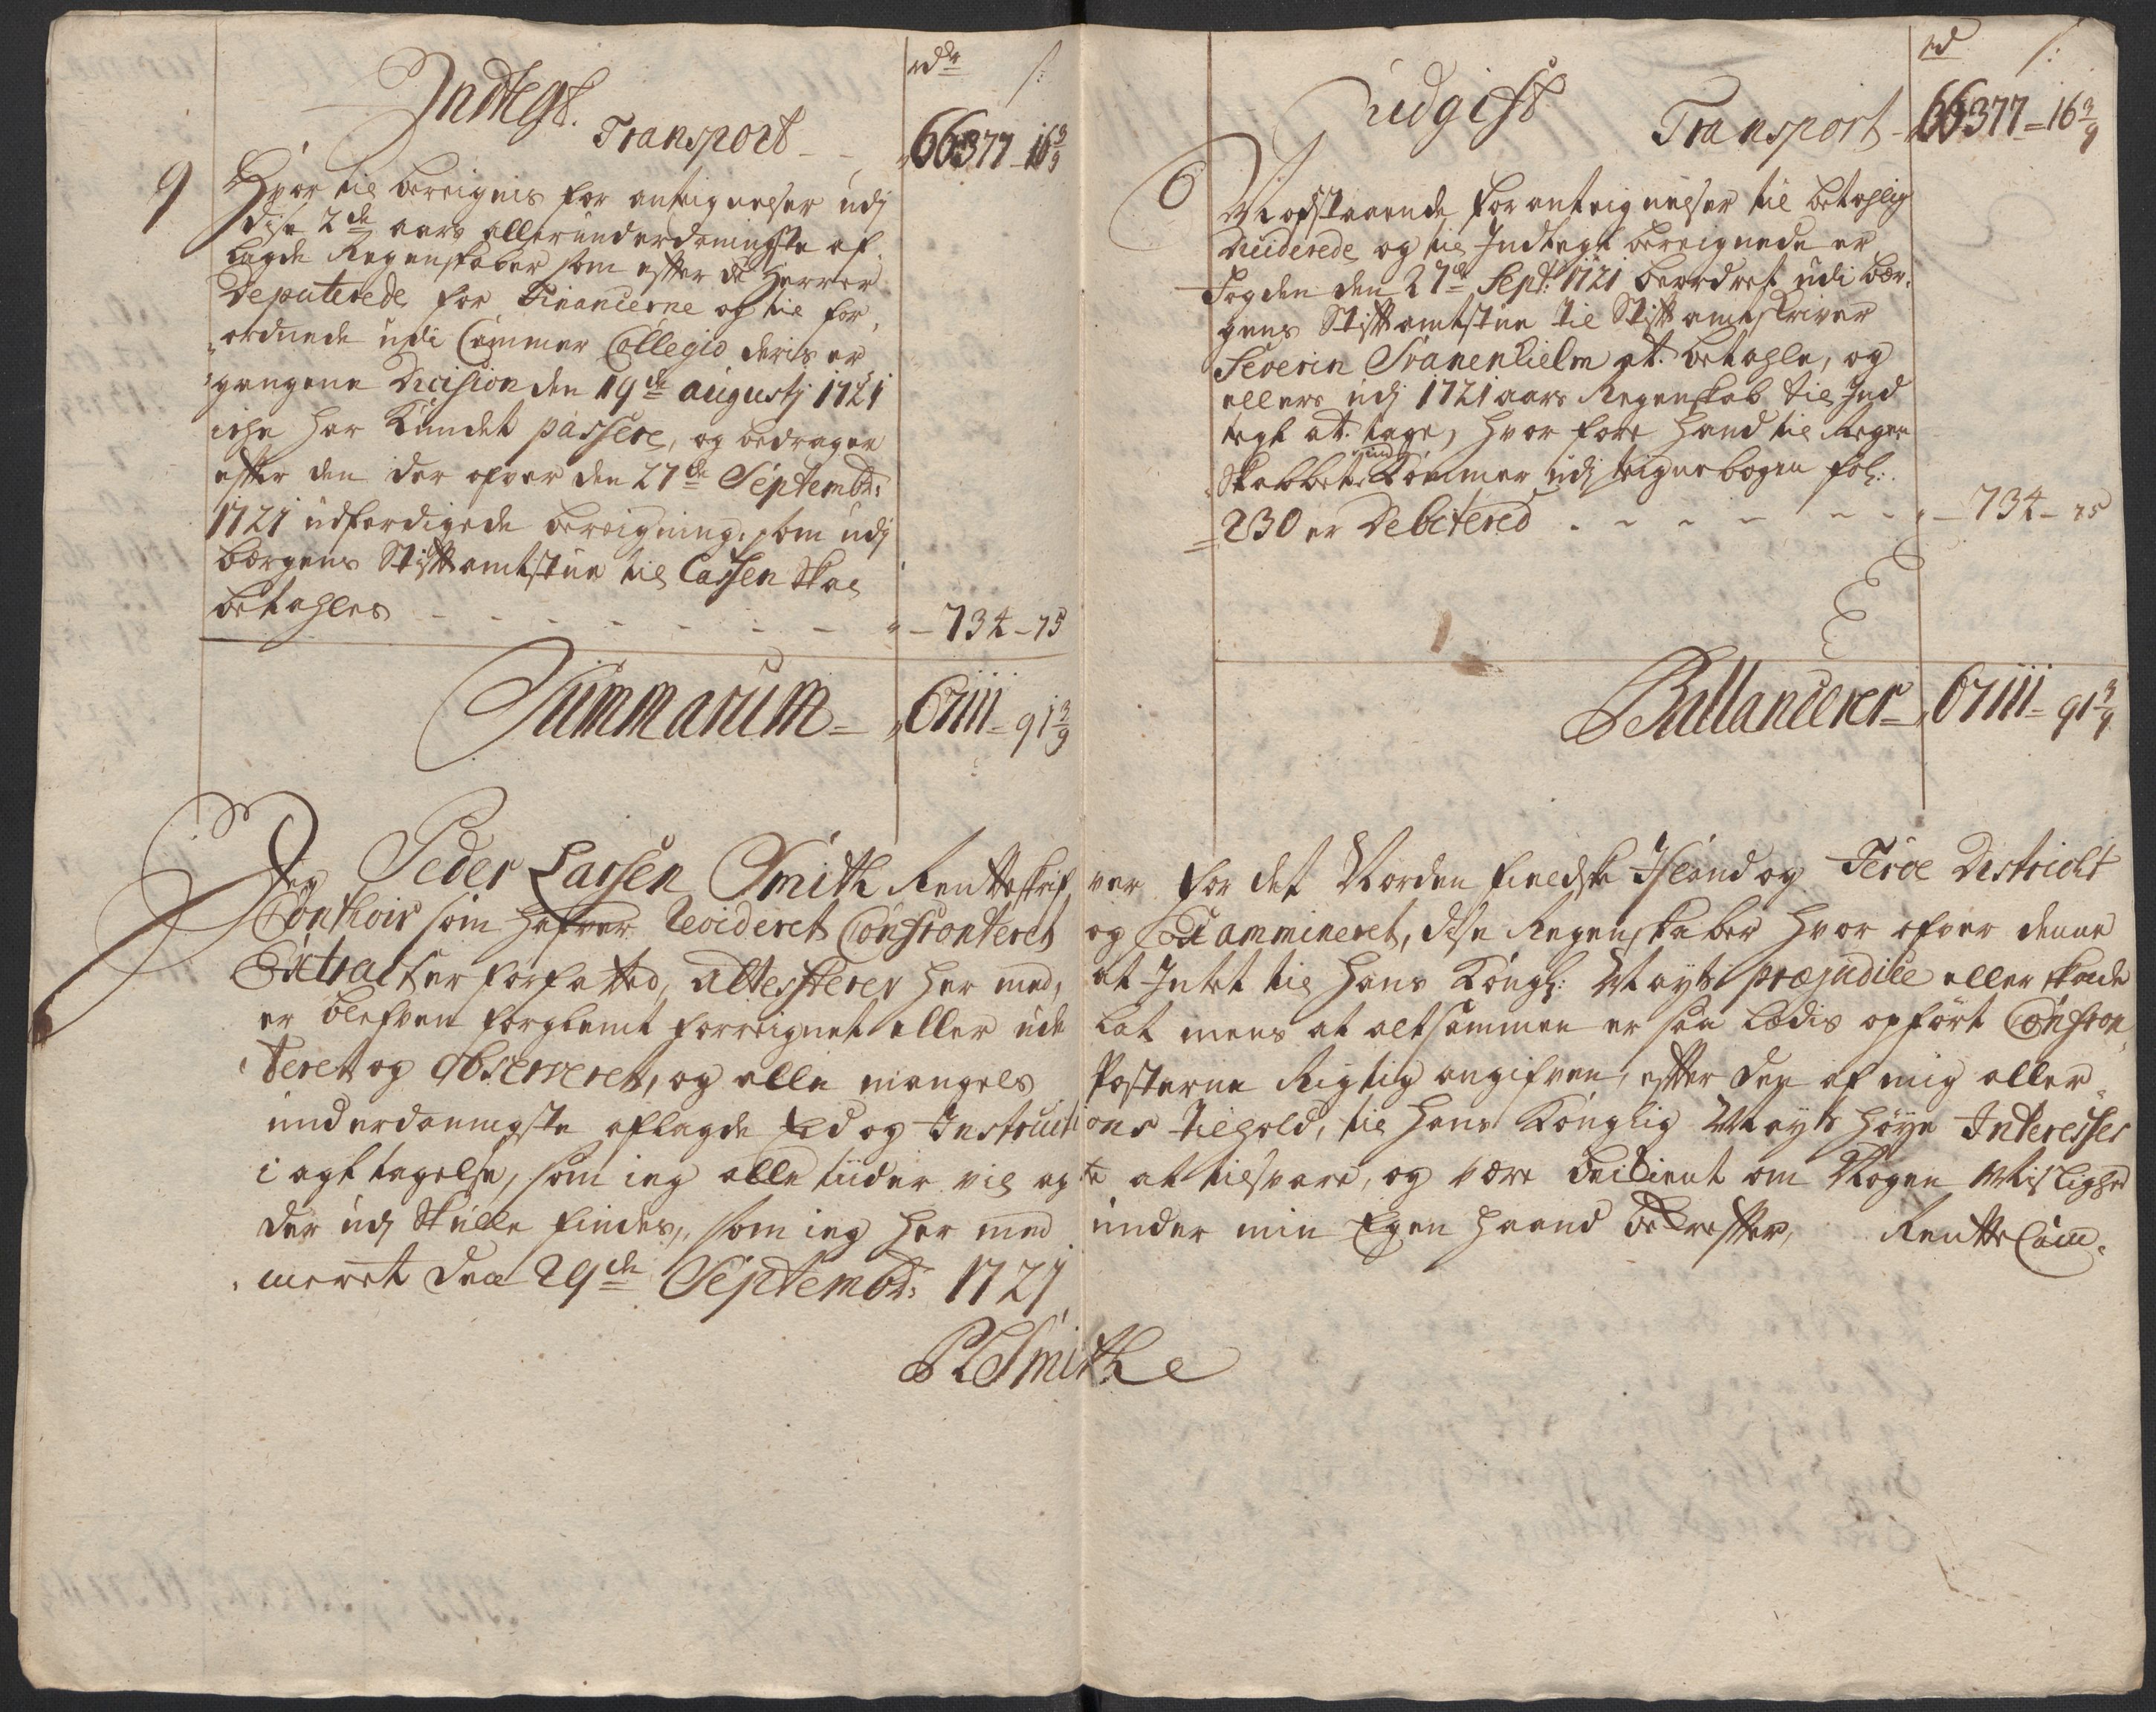 Indtegt.
rdr s:
Transport - - 66377 - 16 3/9
9 Hvor til bereignis for anteignelser udj
disse 2de aars allerunderdanigste af-
lagde Regenskaber som efter de Herrer
Deputerede for Financerne og til for-
ordnede udi Cammer Collegio deris er-
gangene Decision den 19de augustj 1721
iche har Kundet passere, og bedrager
efter den der ofver den 27de Septembr:
1721 udferdigede bereigning, som udj
bergens Stiftamtstue til Cassen Skal
betahles - - - - - - - - 734 - 75
Summarum = 67111 - 91 3/9
Udgift
rd s:
Transport - 66377 - 16 3/9
6 Modstaaende for anteignelser til betahlig
Deciderede og til Indtegt bereignede er
Fogden den 27de Sept: 1721 beordret udi ber-
gens Stiftamtstue til Stiftamtskriver
Severin Svanenhielm at betahle, og
ellers udj 1721 aars Regenskab til Ind
tegt at tage, hvor fore hand til Regen
Skabbets ind Kommer udj teignebogen fol:
230 er Debitered - - - - - - 734 - 75
Ballancerer - 67111 - 91 3/9
Jeg Peder Larsen Smith Rentteskrif ver for det Norden fieldske Island og Feroe Districht
Conthoir som hafver Revideret Confronteret og Exammineret, disse Regenskaber hvor ofver denne
Extract er forfatted, attesterer her med, at Intet til Hans Kongl: Mayts præjudice eller skade
er blefven forglemt forreignet eller ude lat mens at altsammen er saa ledis opført Confron-
teret og observeret, og alle mangels Posterne Rigtig angifven, efter den af mig aller-
underdanigste aflagde Eed og Instructi ons tilhold, til Hans Konglig Mayts høye Interesses
i agt tagelse, som ieg alle tiider vil ag te at tilsvare, og være betient om Nogen Mislighed
der udj Skulle findes, som ieg her med under min Egen haand bekrefter, Rentte Cam-
meret den 29de Septembr: 1721
PLSmith